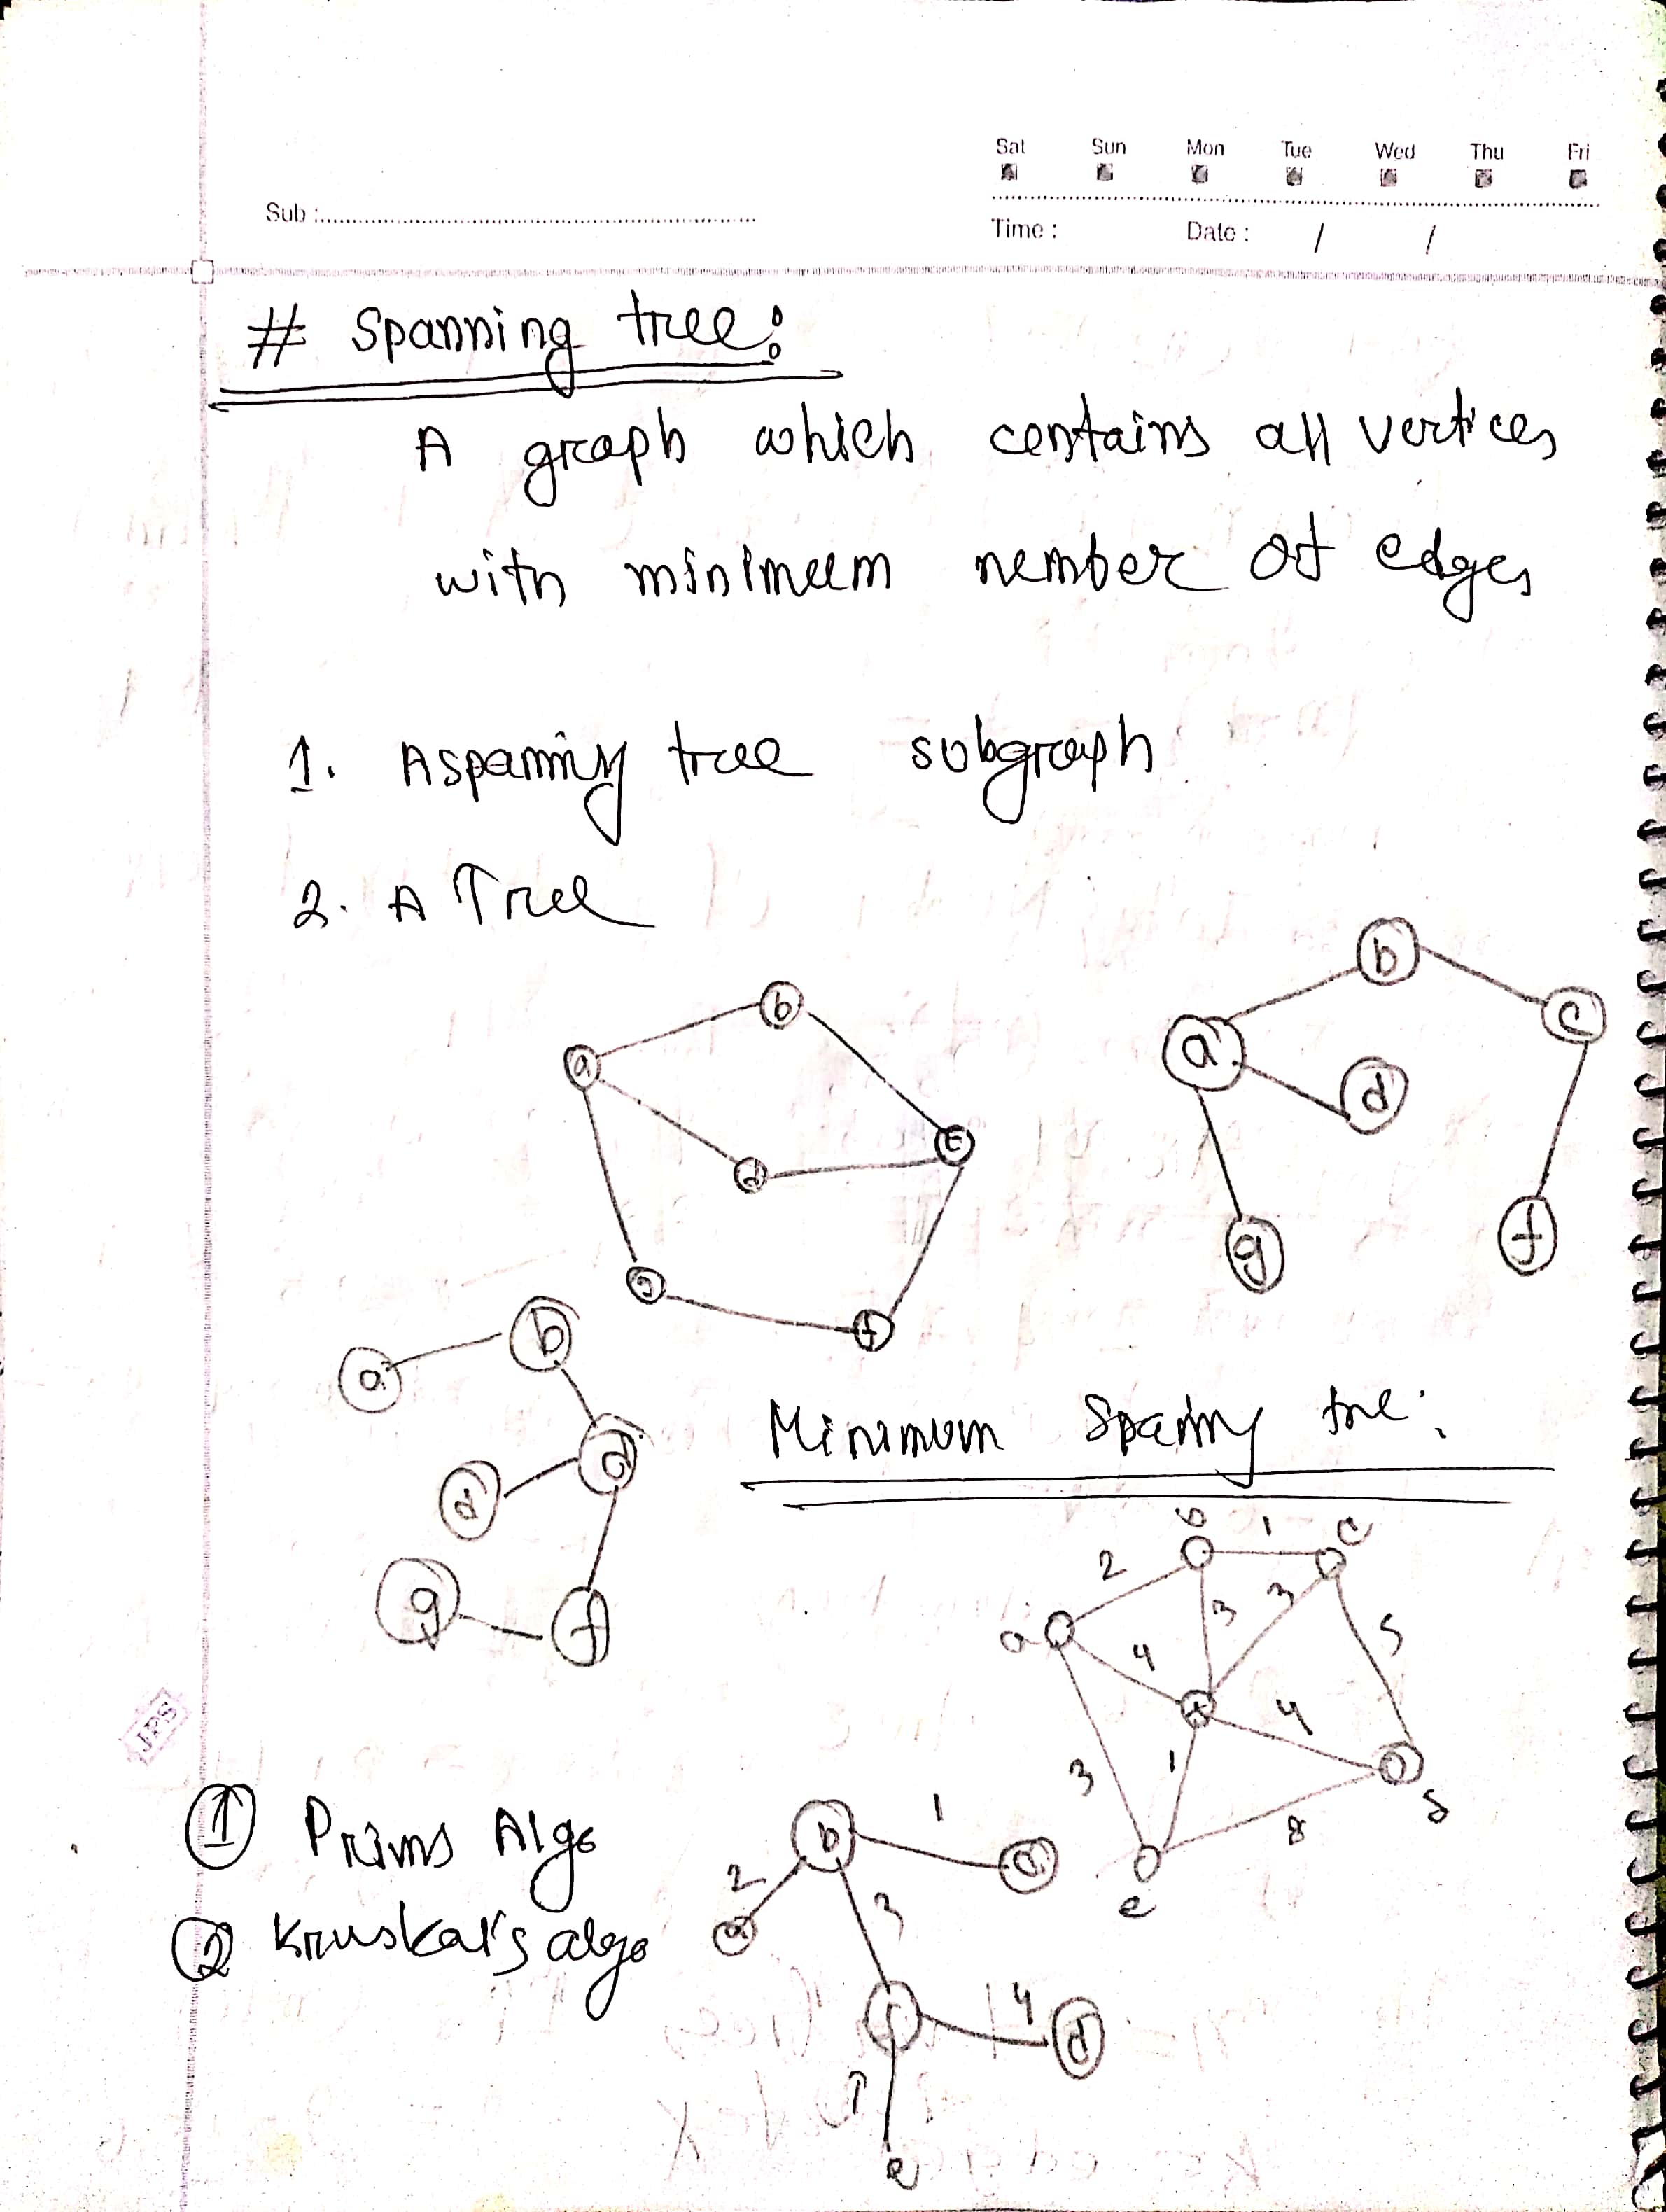 Sat Sun Mon Tue Wed Thu Fri
Sub :
Time : Date : / /
# Spanning tree:
A graph which contains all vertices
with minimum number of edges
1. A spanning tree subgraph
2. A Tree
b
a
c
d
g
f
b
a
c
d
g
f
a
b
d
d
g
f
Minimum Spanning tree:
b 1 c
2
3 3
a 4 5
f 4
3 1
d
8
e
JPS
1 Prims Algo
2 Kruskal's algo
b 1 c
2 3
a
f 4 d
1
e